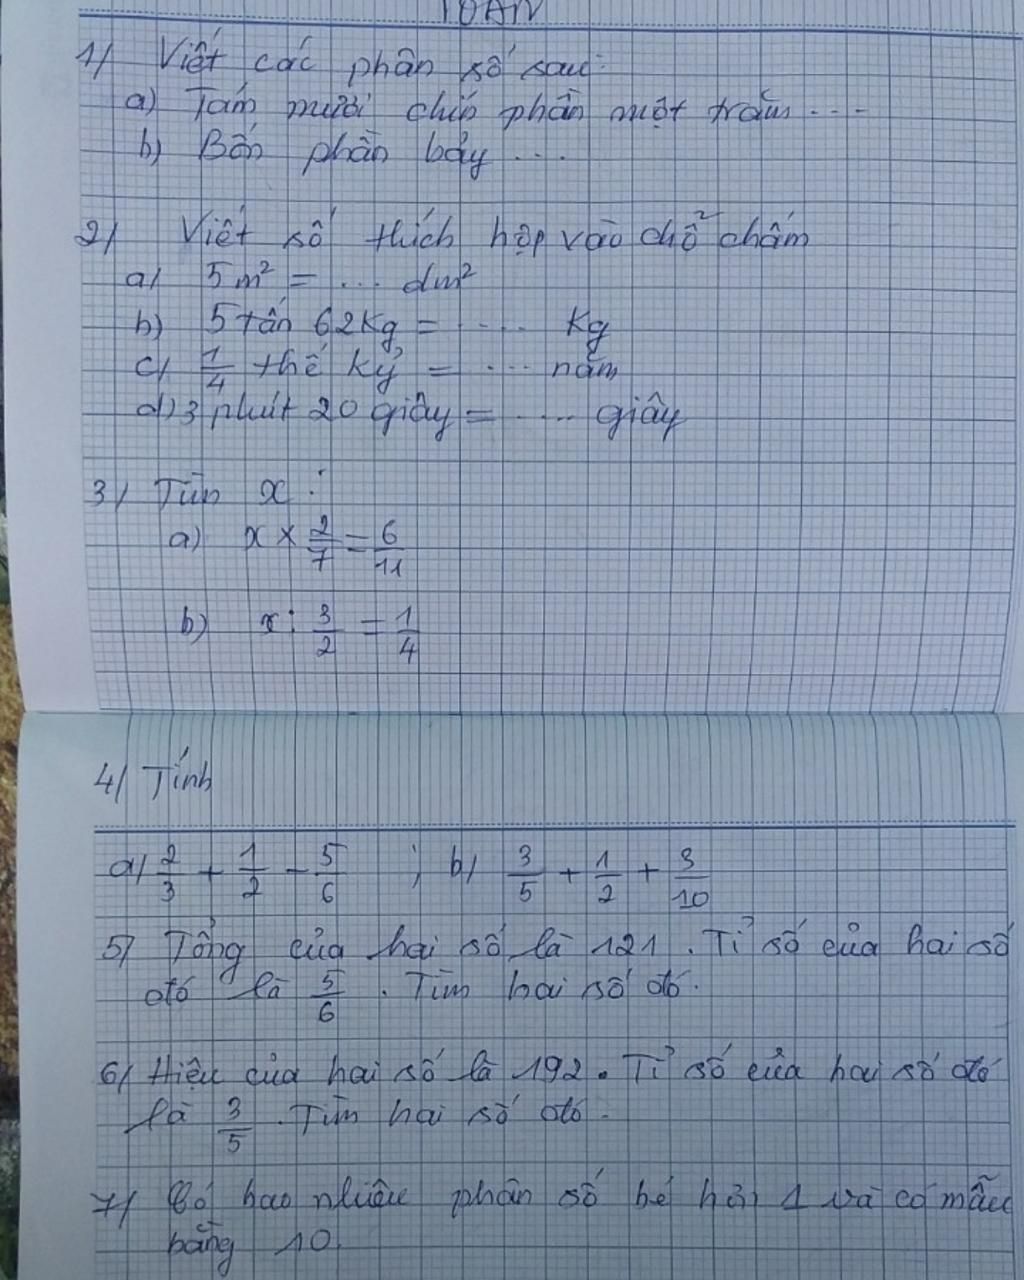 TOÁN
1/ Viết các phân số sau:
a) Tám mươi chín phần một trăm ...
b) Bốn phần bảy ...
2/ Viết số thích hợp vào chỗ chấm
a/ 5m² = ... dm²
b) 5 tấn 62Kg = .... Kg
c/ 1/4 thế kỷ = ... năm
d) 3 phút 20 giây = .... giây
3/ Tìm x :
a) x × 2/7 = 6/11
b) x : 3/2 = 1/4
4/ Tính
a/ 2/3 + 1/2 - 5/6 ; b/ 3/5 + 1/2 + 3/10
5/ Tổng của hai số là 121. Tỉ số của hai số
đó là 5/6. Tìm hai số đó.
6/ Hiệu của hai số là 192. Tỉ số của hai số đó
là 3/5. Tìm hai số đó.
7/ Có bao nhiêu phân số bé hơn 1 và có mẫu
bằng 10.